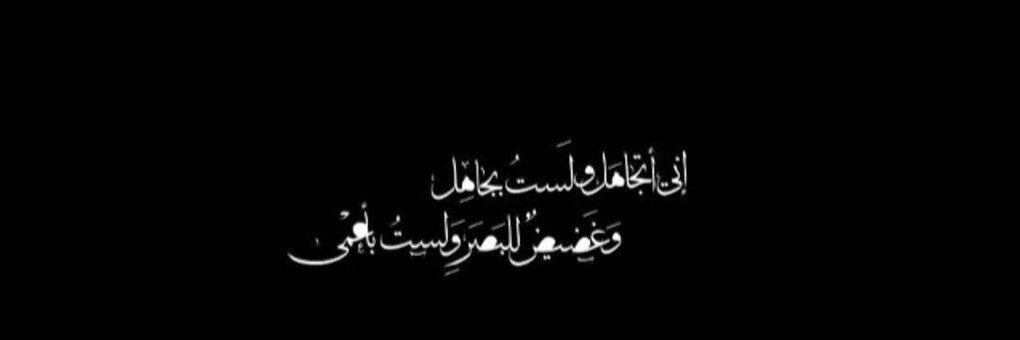 إني أتجاهل ولَستُ بجاهِل
وَغَضيضٌ للبَصَرِ وَلستُ بأعْمى